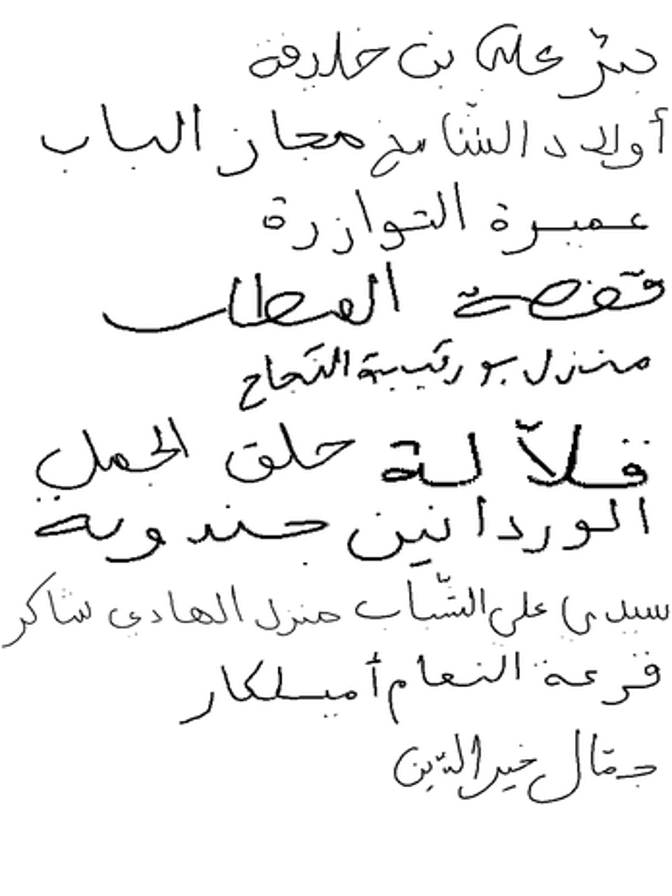 بئر علي بن خليفة
أولاد الشامخ مجاز الباب
عميرة التوازرة
قفصة القطار
منزل بورقيبة النجاح
قلاّلة حلق الجمل
الوردانين جندوبة
سيدي علي الشّباب منزل الهادي شاكر
قرعة النعام أميلكار
جمّال خير الدّين